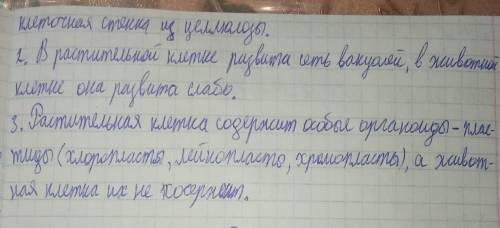 клеточная стенка из целлюлозы.
2. В растительной клетке развита сеть вакуолей, в животной
клетке она развита слабо.
3. Растительная клетка содержит особые органоиды - плас-
тиды (хлоропласты, лейкопласты, хромопласты), а живот-
ная клетка их не содержит.